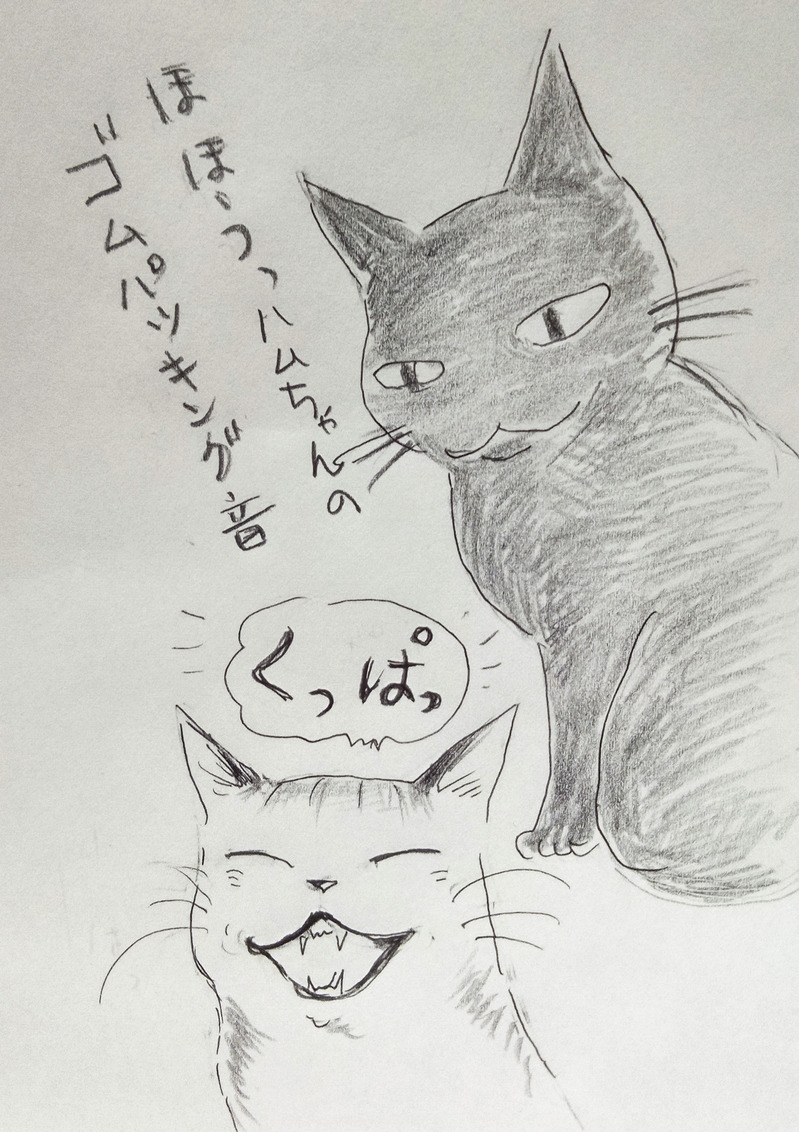 ほほう、ハムちゃんの
ゴムパッキング音
くっぱっ